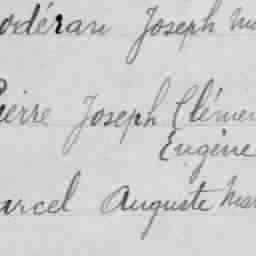 odéran Joseph M
Pierre Joseph Clémen
Eugène
arcel Auguste Mar